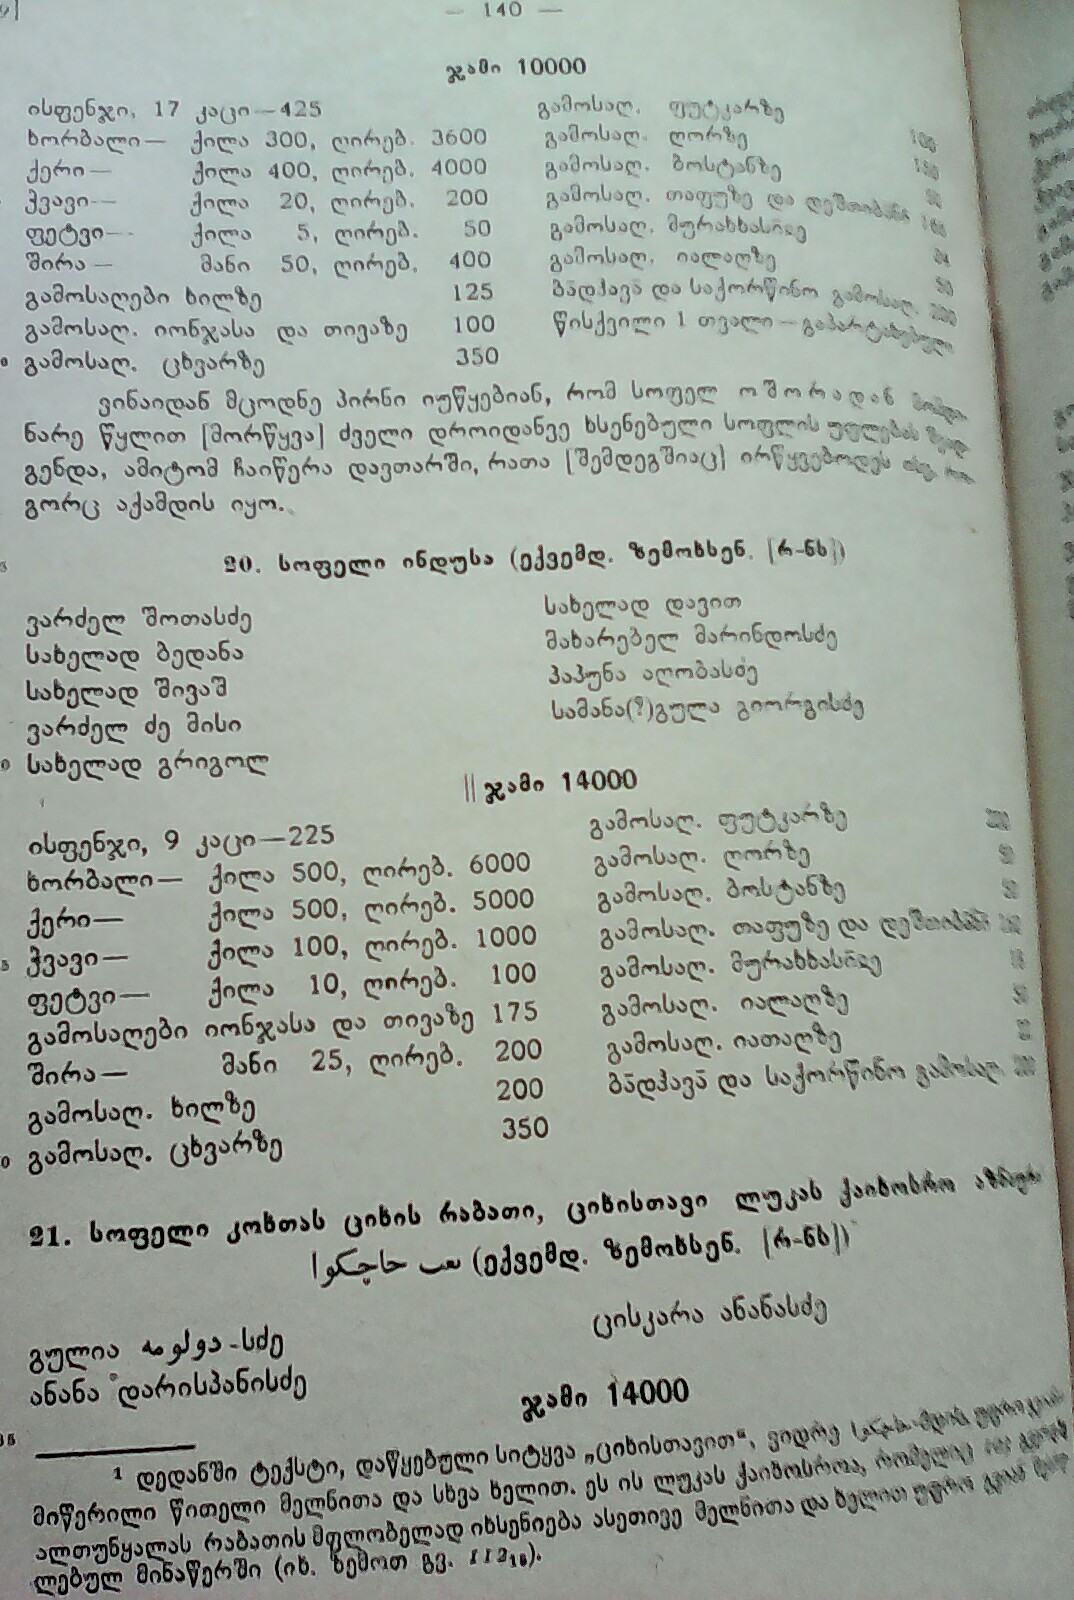 — 140 —
ჯამი 10000
ისფენჯი, 17 კაცი—425 გამოსაღ. ფუტკარზე
ხორბალი— ქილა 300, ღირებ. 3600 გამოსაღ. ღორზე
ქერი— ქილა 400, ღირებ. 4000 გამოსაღ. ბოსტანზე
ჭვავი— ქილა 20, ღირებ. 200 გამოსაღ. თაფუზე და დეშთიბანი
ფეტვი— ქილა 5, ღირებ. 50 გამოსაღ.
შირა— მანი 50, ღირებ. 400 გამოსაღ. იალაღზე
გამოსაღები ხილზე 125 ბადჰავა და საქორწინო გამოსაღ.
გამოსაღ. იონჯასა და თივაზე 100 წისქვილი 1 თვალი—გაპარტახებული
გამოსაღ. ცხვარზე 350
ვინაიდან მცოდნე პირნი იუწყებიან, რომ სოფელ ოშორადან
ნარე წყლით [მორწყვა] ძველი დროიდანვე ხსენებული სოფლის უფლებას
გენდა, ამიტომ ჩაიწერა დავთარში, რათა [შემდეგშიაც] ირწყვებოდეს
გორც აქამდის იყო.
20. სოფელი ინდუსა (ექვემდ. ზემოხსენ. [რ-ნს])
ვარძელ შოთასძე სახელად დავით
სახელად ბედანა მახარებელ მარინდოსძე
სახელად შივაშ პაპუნა აღობასძე
ვარძელ ძე მისი სამანა(?)გულა გიორგისძე
სახელად გრიგოლ
|| ჯამი 14000
ისფენჯი, 9 კაცი—225 გამოსაღ. ფუტკარზე
ხორბალი— ქილა 500, ღირებ. 6000 გამოსაღ. ღორზე
ქერი— ქილა 500, ღირებ. 5000 გამოსაღ. ბოსტანზე
ჭვავი— ქილა 100, ღირებ. 1000 გამოსაღ. თაფუზე და დეშთიბანი
ფეტვი— ქილა 10, ღირებ. 100 გამოსაღ.
გამოსაღები იონჯასა და თივაზე 175 გამოსაღ. იალაღზე
შირა— მანი 25, ღირებ. 200 გამოსაღ. იათაღზე
გამოსაღ. ხილზე 200 ბადჰავა და საქორწინო გამოსაღ.
გამოსაღ. ცხვარზე 350
21. სოფელი კოხთას ციხის რაბათი, ციხისთავი ლუკას ქაიხოსრო
(ექვემდ. ზემოხსენ. [რ-ნს])
გულია -სძე ცისკარა ანანასძე
ანანა დარისპანისძე
ჯამი 14000
¹ დედანში ტექსტი, დაწყებული სიტყვა „ციხისთავით“, ვიდრე
მიწერილი წითელი მელნითა და სხვა ხელით. ეს ის ლუკას ქაიხოსროა, რომელიც
ალთუნყალას რაბათის მფლობელად იხსენიება ასეთივე მელნითა და ხელით უფრო გვიან
ლებულ მინაწერში (იხ. ზემოთ გვ.